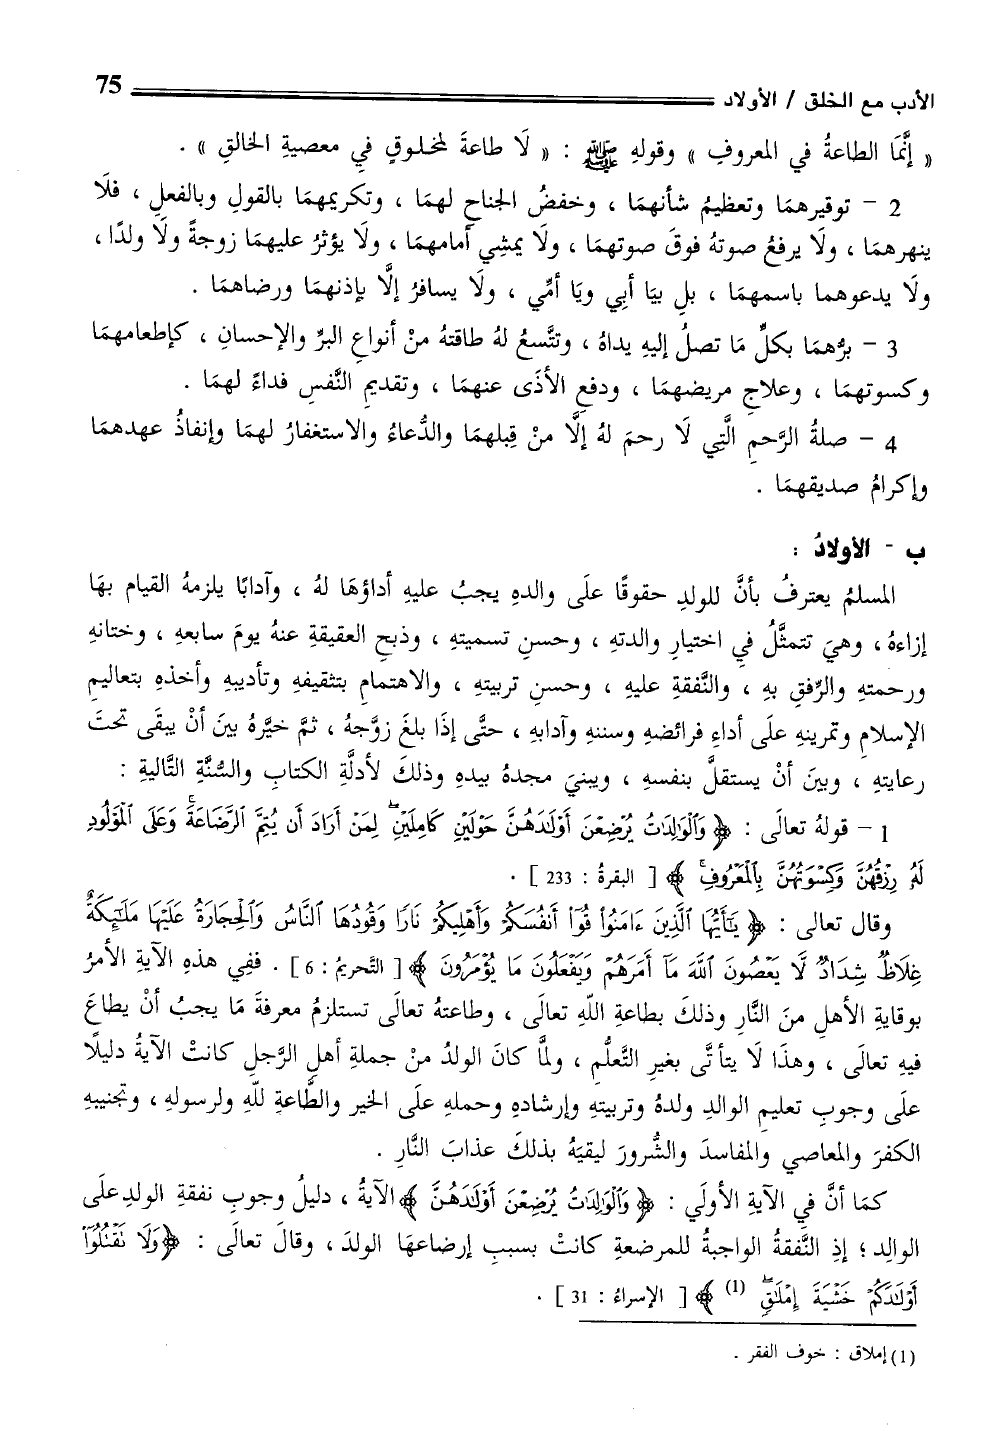 الأدب مع الخلق / الأولاد 75
« إنَّمَا الطاعةُ في المعروفِ » وقولهِ ﷺ : « لَا طاعةَ لمخلوقٍ في معصيةِ الخالقِ » .
2 – توقيرهمَا وتعظيمُ شأنهمَا ، وخفضُ الجناحِ لهمَا ، وتكريمهمَا بالقولِ وبالفعلِ ، فلَا
ينهرهمَا ، ولَا يرفعُ صوتهُ فوقَ صوتهمَا ، ولَا يمشِي أمامهمَا ، ولَا يؤثرُ عليهمَا زوجةً ولَا ولدًا ،
ولَا يدعوهما باسمهمَا ، بلِ بيَا أبِي ويَا أمِّي ، ولَا يسافرُ إلَّا بإذنهمَا ورضاهمَا .
3 – برُّهمَا بكلِّ مَا تصلُ إليهِ يداهُ ، وتتَّسعُ لهُ طاقتهُ منْ أنواعِ البرِّ والإحسانِ ، كإطعامهمَا
وكسوتهمَا ، وعلاجِ مريضهمَا ، ودفعِ الأذَى عنهمَا ، وتقديمِ النَّفسِ فداءً لهمَا .
4 – صلةُ الرَّحمِ الَّتِي لَا رحمَ لهُ إلَّا منْ قِبلهمَا والدُّعاءُ والاستغفارُ لهمَا وإنفاذُ عهدهمَا
وإكرامُ صديقهمَا .
ب - الأولادُ :
المسلمُ يعترفُ بأنَّ للولدِ حقوقًا علَى والدهِ يجبُ عليهِ أداؤهَا لهُ ، وآدابًا يلزمهُ القيام بهَا
إزاءهُ ، وهيَ تتمثَّلُ في اختيارِ والدتهِ ، وحسنِ تسميتهِ ، وذبحِ العقيقةِ عنهُ يومَ سابعهِ ، وختانهِ
ورحمتهِ والرِّفقِ بهِ ، والنَّفقةِ عليهِ ، وحسنِ تربيتهِ ، والاهتمامِ بتثقيفهِ وتأديبهِ وأخذهِ بتعاليمِ
الإسلامِ وتمرينهِ علَى أداءِ فرائضهِ وسننهِ وآدابهِ ، حتَّى إذَا بلغَ زوَّجهُ ، ثمَّ خيَّرهُ بينَ أنْ يبقَى تحتَ
رعايتهِ ، وبينَ أنْ يستقلَّ بنفسهِ ، ويبنيَ مجدهُ بيدهِ وذلكَ لأدلَّةِ الكتابِ والسُّنَّةِ التَّاليةِ :
1 – قولهُ تعالَى : ﴿ وَٱلْوَٰلِدَٰتُ يُرْضِعْنَ أَوْلَٰدَهُنَّ حَوْلَيْنِ كَامِلَيْنِ ۖ لِمَنْ أَرَادَ أَن يُتِمَّ ٱلرَّضَاعَةَ ۚ وَعَلَى ٱلْمَوْلُودِ
لَهُۥ رِزْقُهُنَّ وَكِسْوَتُهُنَّ بِٱلْمَعْرُوفِ ۚ ﴾ [ البقرةُ : 233 ] .
وقال تعالى : ﴿ يَٰٓأَيُّهَا ٱلَّذِينَ ءَامَنُوا۟ قُوٓا۟ أَنفُسَكُمْ وَأَهْلِيكُمْ نَارًا وَقُودُهَا ٱلنَّاسُ وَٱلْحِجَارَةُ عَلَيْهَا مَلَٰٓئِكَةٌ
غِلَاظٌ شِدَادٌ لَّا يَعْصُونَ ٱللَّهَ مَآ أَمَرَهُمْ وَيَفْعَلُونَ مَا يُؤْمَرُونَ ﴾ [ التَّحريمُ : 6 ] . ففِي هذهِ الآيةِ الأمرُ
بوقايةِ الأهلِ منَ النَّارِ وذلكَ بطاعةِ اللّهِ تعالَى ، وطاعتهُ تعالَى تستلزمُ معرفةَ مَا يجبُ أنْ يطاعَ
فيهِ تعالَى ، وهذَا لَا يتأتَّى بغيرِ التَّعلُّمِ ، ولمَّا كانَ الولدُ منْ جملةِ أهلِ الرَّجلِ كانتْ الآيةُ دليلًا
علَى وجوبِ تعليمِ الوالدِ ولدهُ وتربيتهِ وإرشادهِ وحملهِ علَى الخيرِ والطَّاعةِ للّهِ ولرسولهِ ، وتجنيبهِ
الكفرَ والمعاصي والمفاسدَ والشُّرورَ ليقيَهُ بذلكَ عذابَ النَّارِ .
كمَا أنَّ في الآيةِ الأولَي : ﴿ وَٱلْوَٰلِدَٰتُ يُرْضِعْنَ أَوْلَٰدَهُنَّ ﴾ الآيةُ ، دليلُ وجوبِ نفقةِ الولدِ علَى
الوالِد ؛ إذِ النَّفقةُ الواجبةُ للمرضعةِ كانتْ بسببِ إرضاعهَا الولدَ ، وقالَ تعالَى : ﴿ وَلَا تَقْتُلُوٓا۟
أَوْلَٰدَكُمْ خَشْيَةَ إِمْلَٰقٍ ۖ (1) ﴾ [ الإسراءُ : 31 ] .
(1) إملاق : خوف الفقر .